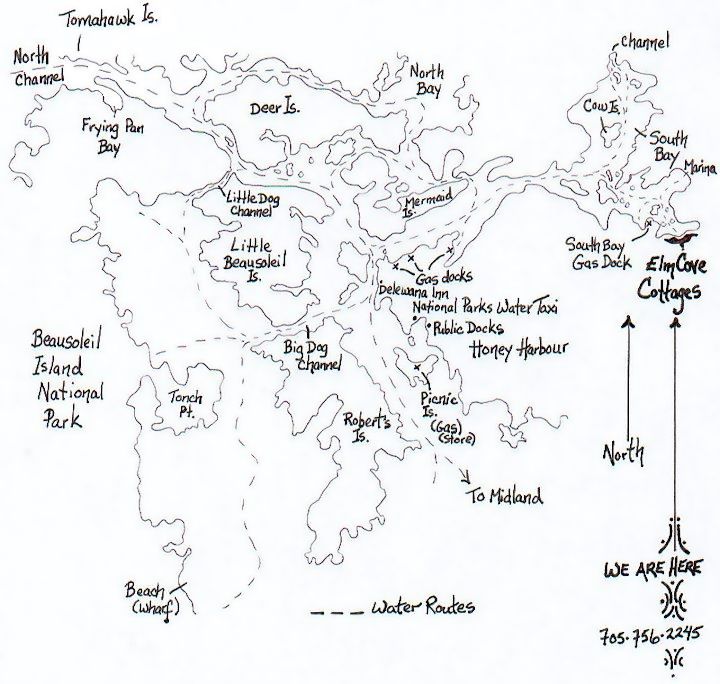 Tomahawk Is.
channel
North
Channel
North
Bay
Deer Is.
Cow Is.
Frying Pan
Bay
South
Bay
Marina
Little Dog
Channel
Mermaid
Is.
Little
Beausoleil
Is.
South Bay
Gas Dock
Elm Cove
Cottages
Gas docks
Delewana Inn
National Parks Water Taxi
Public Docks
Honey Harbour
Beausoleil
Island
National
Park
Big Dog
Channel
Tonch
Pt.
Picnic
Is.
(Gas)
(store)
Robert's
Is.
North
To Midland
WE ARE HERE
Beach
(Wharf)
Water Routes
705-756-2245